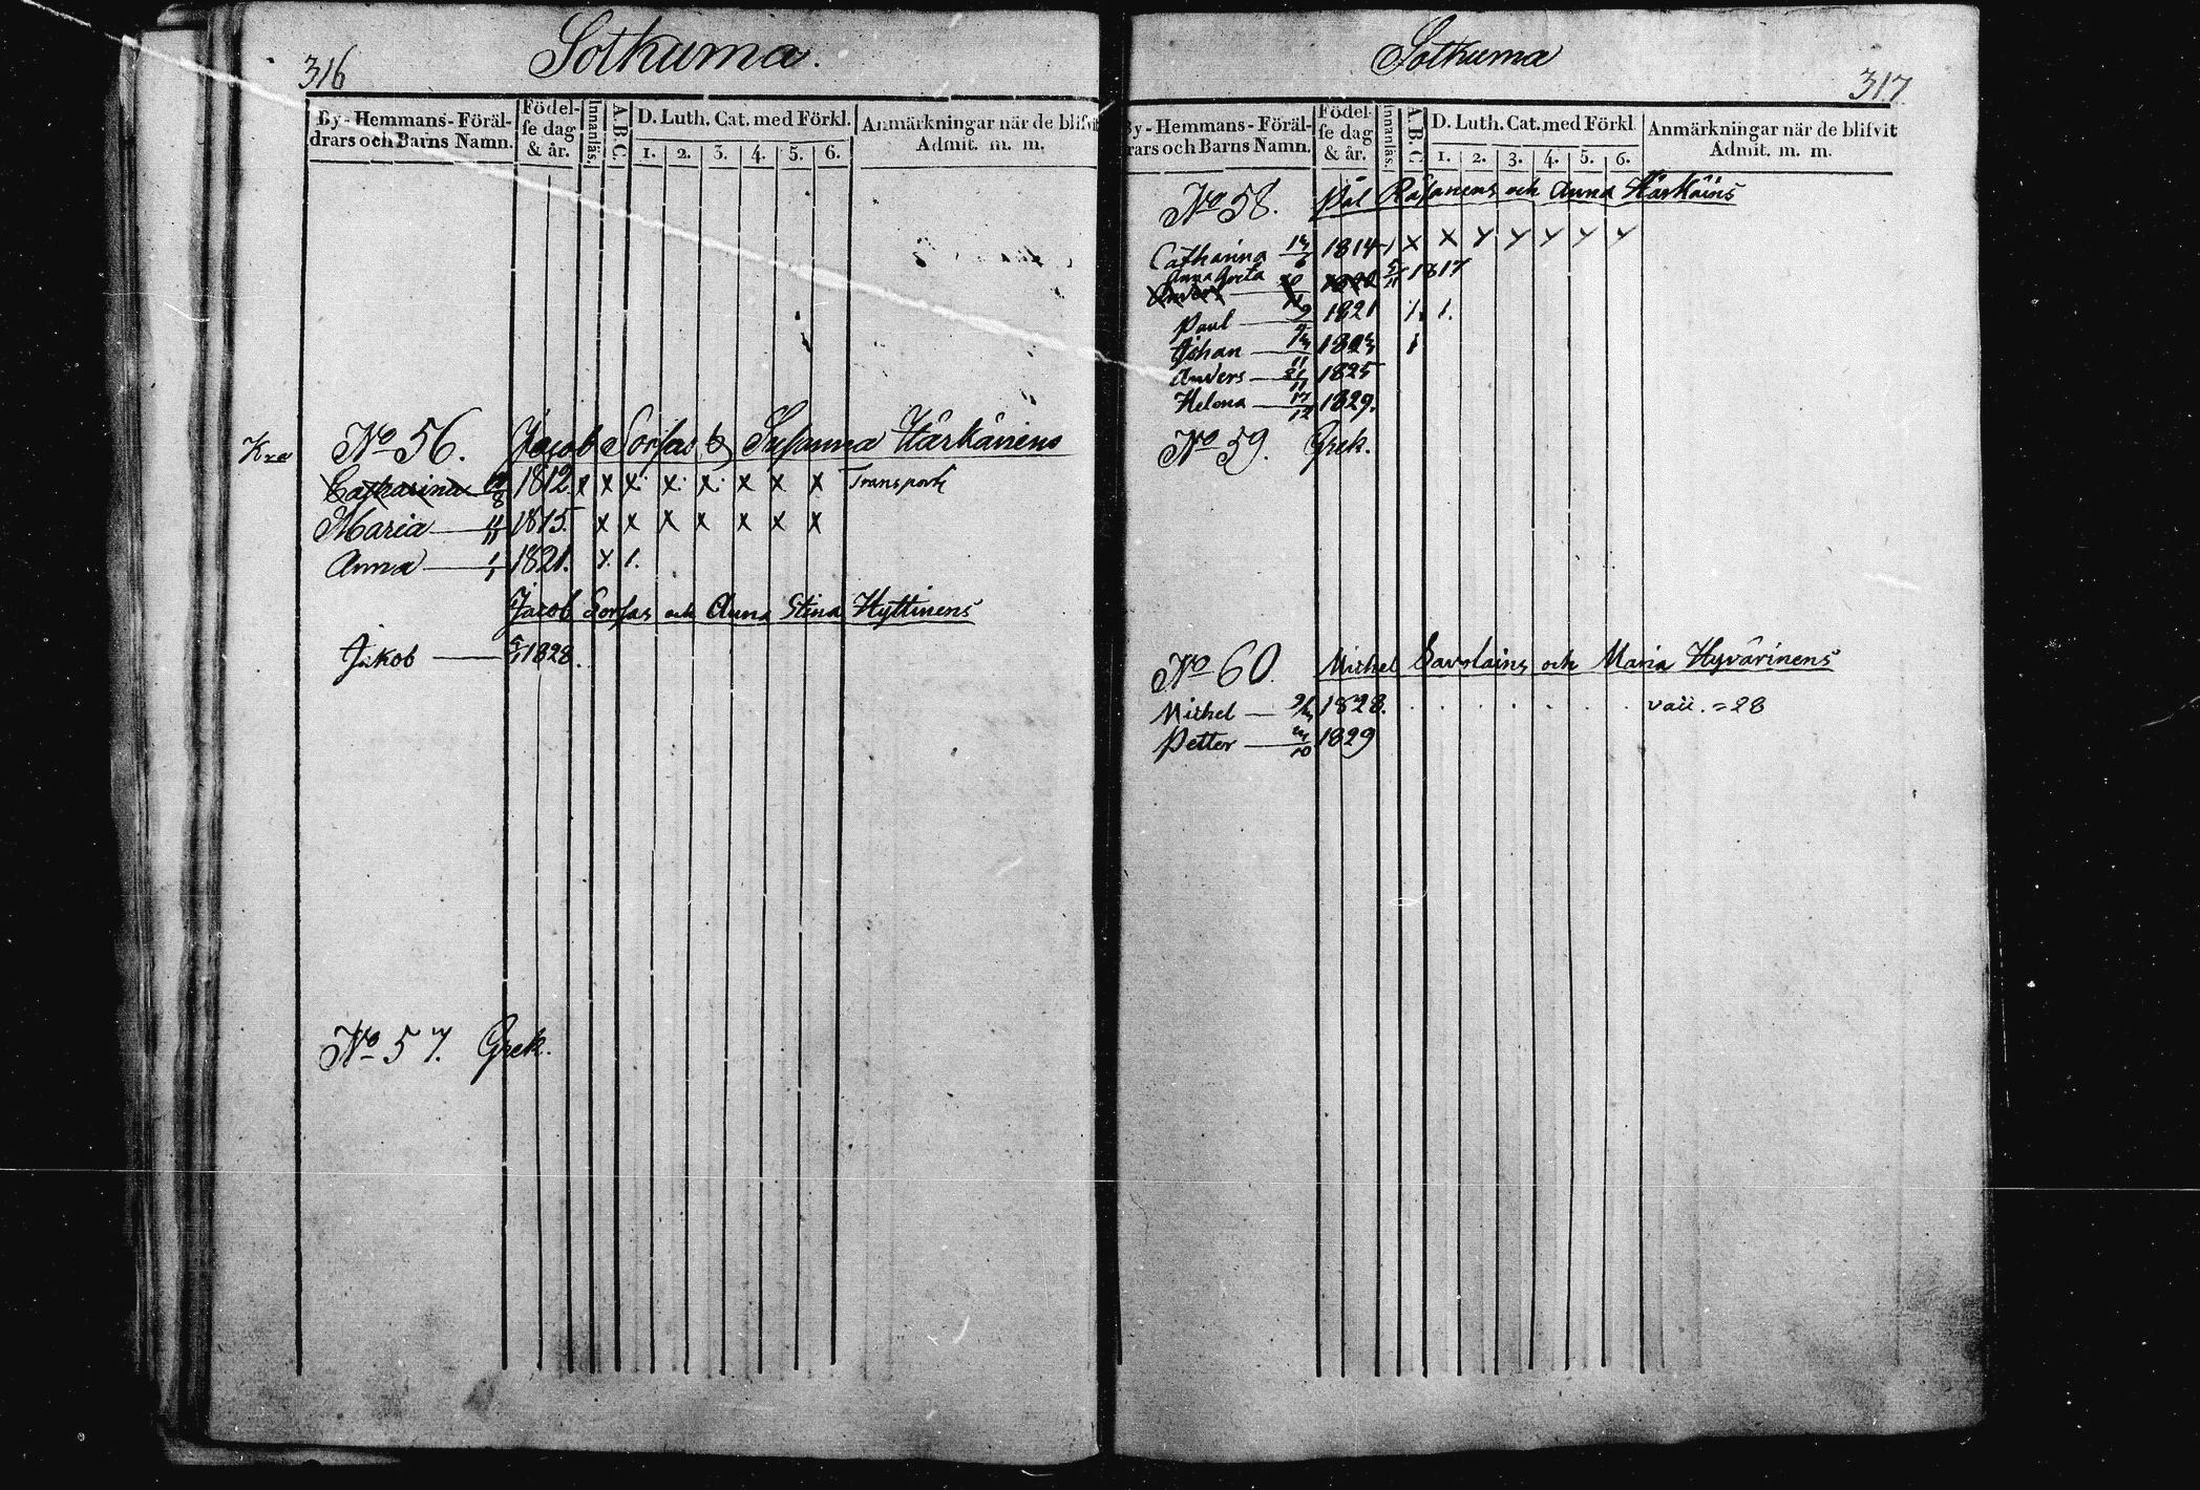 316
Sotkuma.
By-Hemmans-Föräl-
drars och Barns Namn.
Födel-
se dag
& år.
Innanläs.
A.B.C.
D. Luth. Cat. med Förkl.
1. 2. 3. 4. 5. 6.
Anmärkningar när de blifvit
Admit. m. m.
No 56. Jacob Sorsas & Susanna Härkänens
Catharina 1812. x x x x x x x x Transport
Maria 1815. x x x x x x x
Anna 1/1 1821. x. 1.
Jacob Sorsas och Anna Stina Hyttinens
Jakob 1828.
No 57. Grek.
Sotkuma
317
By-Hemmans-Föräl-
drars och Barns Namn.
Födel-
se dag
& år.
Innanläs.
A.B.C
D. Luth. Cat. med Förkl.
1. 2. 3. 4. 5. 6.
Anmärkningar när de blifvit
Admit. m. m.
No 58. Pål Räsänens och Anna Härkäins
Catharina 1814 x x x x x x x
Anna Greta 1817
Anders
Paul 1821 1. 1.
Johan 1
Anders 21/11 1825
Helena 17/12 1829.
No 59. Grek.
No 60. Michel Savolains och Maria Hyvärinens
Michel 1828. . . . . . . . vacc. = 28
Petter 1829